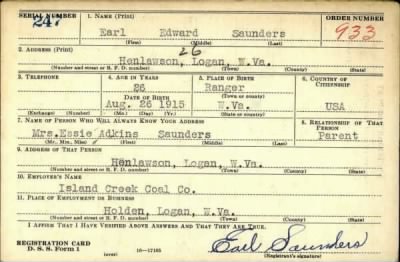 SERIAL NUMBER 1. NAME (Print) ORDER NUMBER
247 Earl Edward Saunders 933
(First) (Middle) (Last)
26
2. ADDRESS (Print)
Henlawson, Logan, W.Va.
(Number and street or R. F. D. number) (Town) (County) (State)
3. TELEPHONE 4. AGE IN YEARS 5. PLACE OF BIRTH 6. COUNTRY OF CITIZENSHIP
26 Ranger
DATE OF BIRTH (Town or county)
Aug. 26 1915 W.Va. USA
(Exchange) (Number) (Mo.) (Day) (Yr.) (State or country)
7. NAME OF PERSON WHO WILL ALWAYS KNOW YOUR ADDRESS 8. RELATIONSHIP OF THAT PERSON
Mrs. Essie Adkins Saunders Parent
(Mr., Mrs., Miss) (First) (Middle) (Last)
9. ADDRESS OF THAT PERSON
Henlawson, Logan, W.Va.
(Number and street or R. F. D. number) (Town) (County) (State)
10. EMPLOYER'S NAME
Island Creek Coal Co.
11. PLACE OF EMPLOYMENT OR BUSINESS
Holden, Logan, W.Va.
(Number and street or R. F. D. number) (Town) (County) (State)
I AFFIRM THAT I HAVE VERIFIED ABOVE ANSWERS AND THAT THEY ARE TRUE.
REGISTRATION CARD
D. S. S. Form 1 16-17105 Earl Saunders
(over) (Registrant's signature)